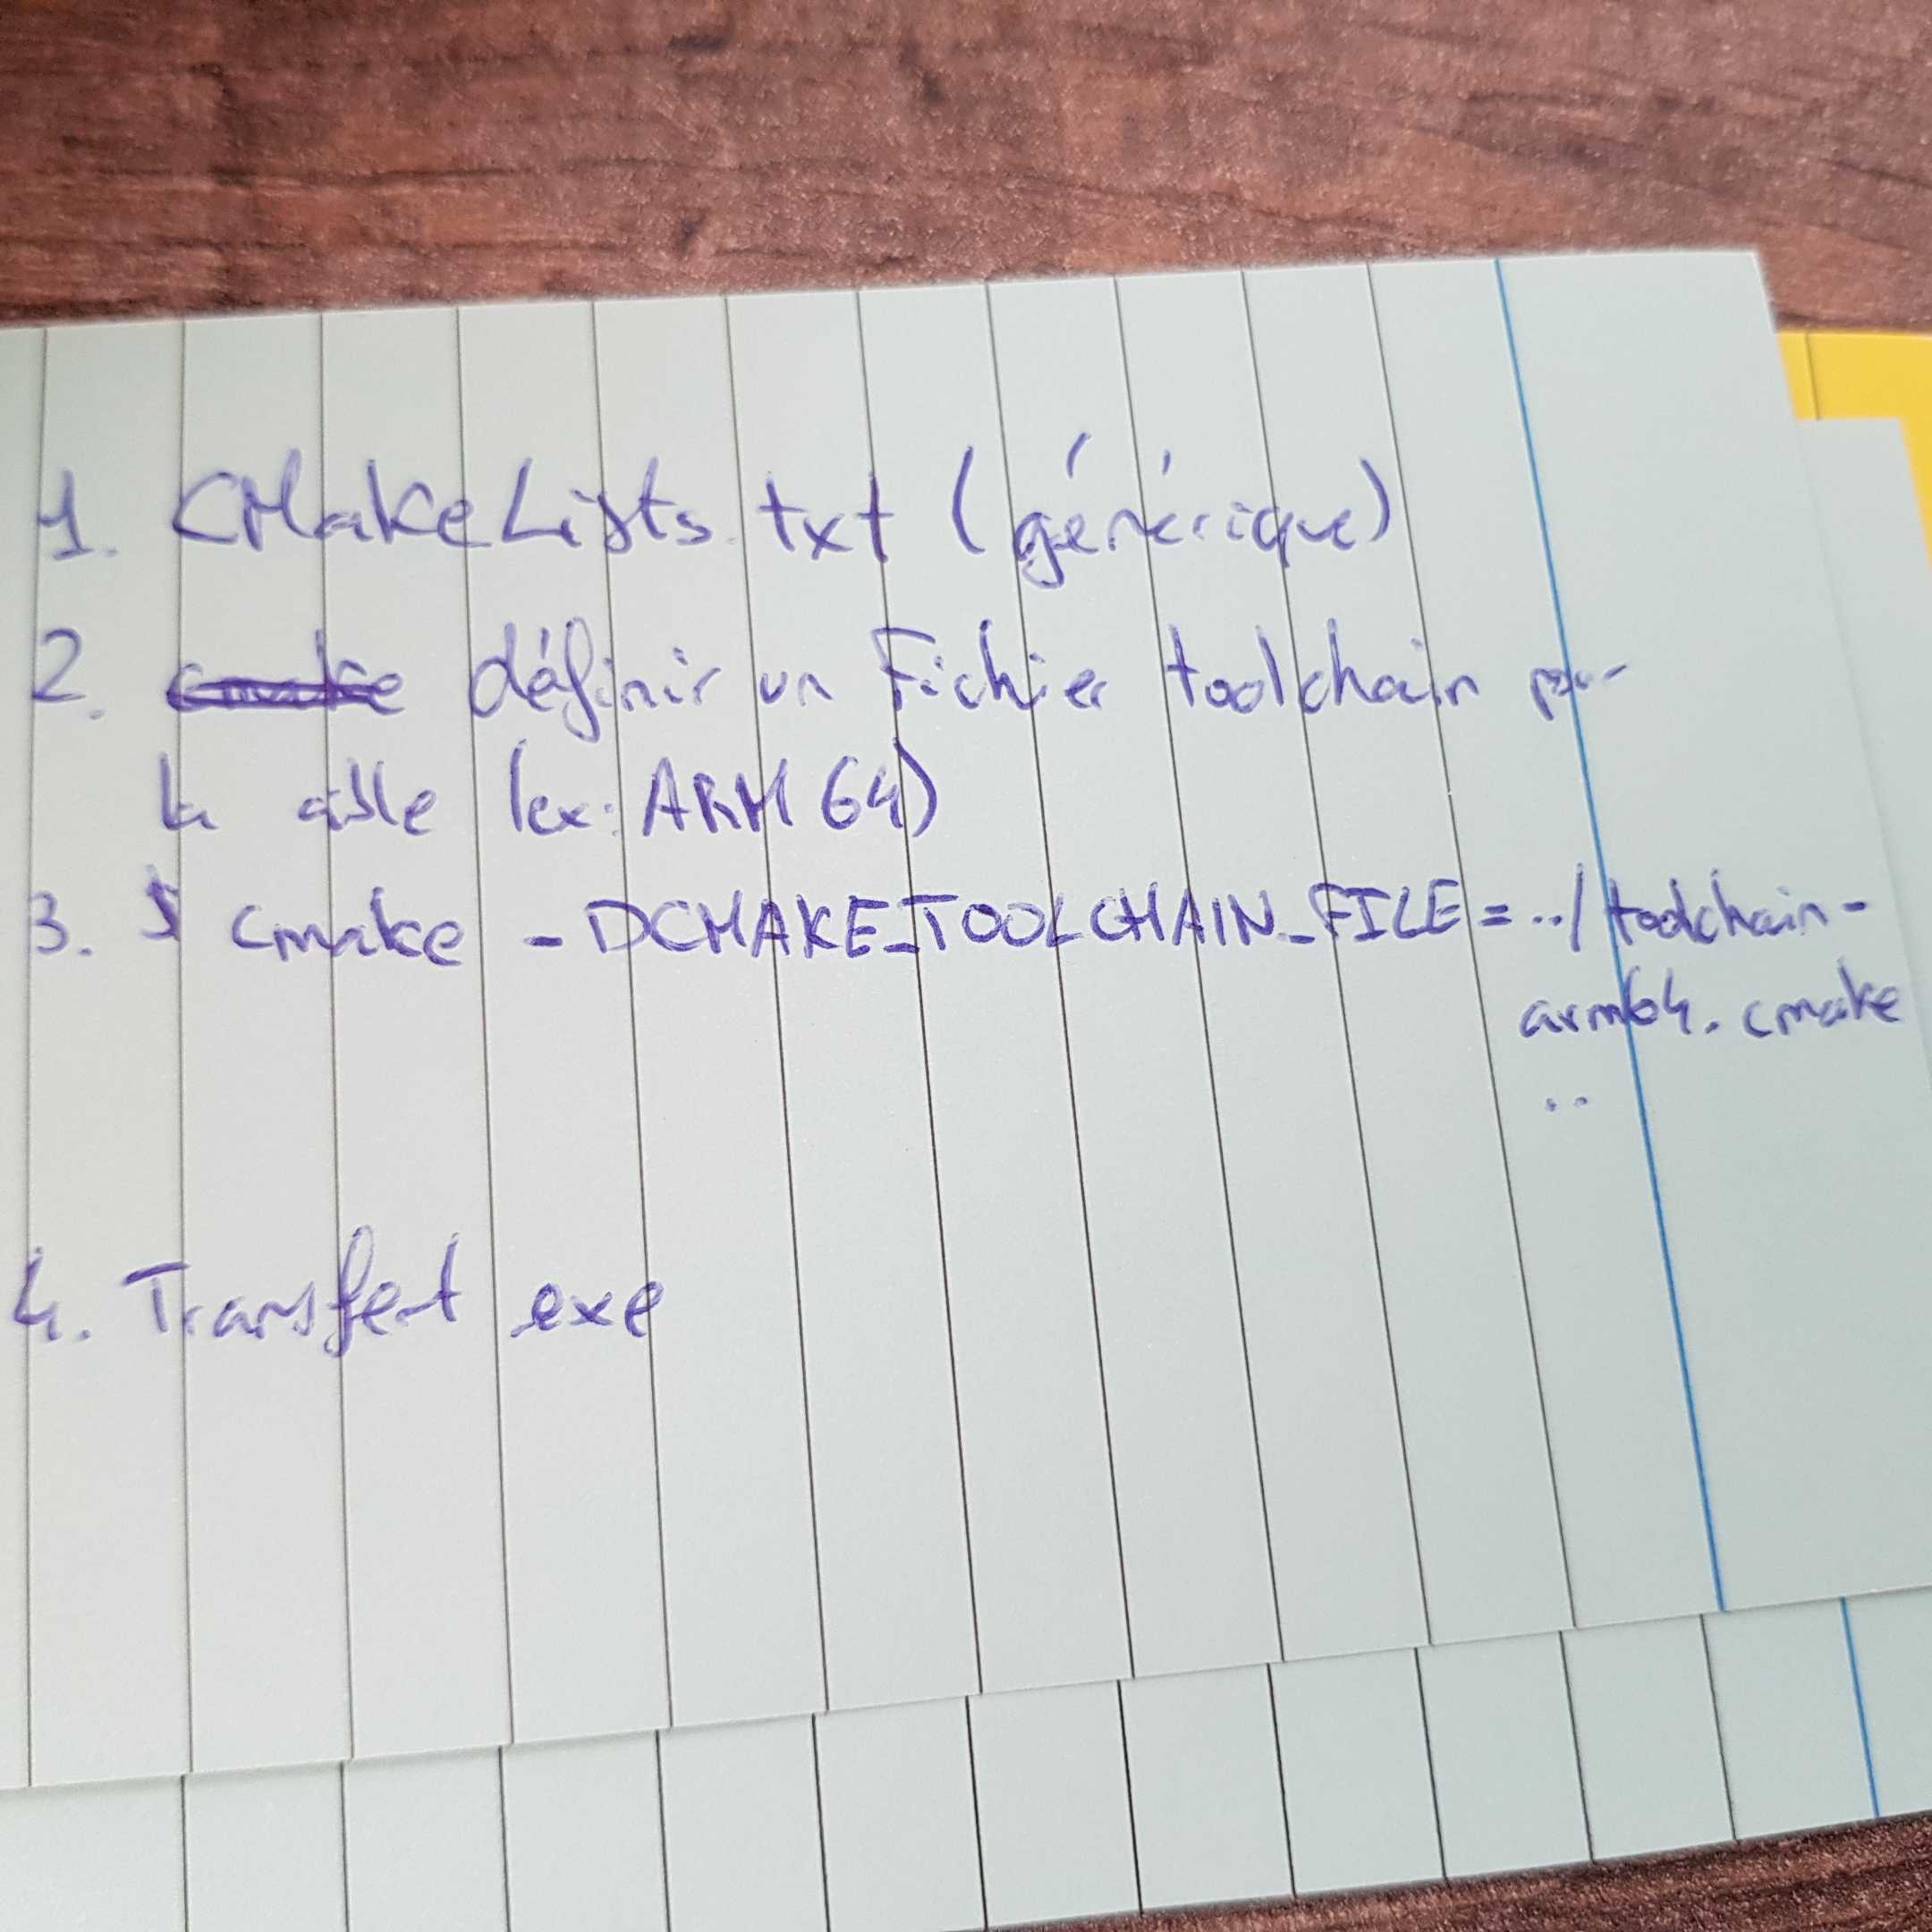 1. CMakeLists.txt (générique)
2. définir un Fichier toolchain pour
la cible (ex: ARM64)
3. $ cmake -DCMAKE_TOOLCHAIN_FILE=../toolchain-
arm64.cmake
..
4. Transfert exe